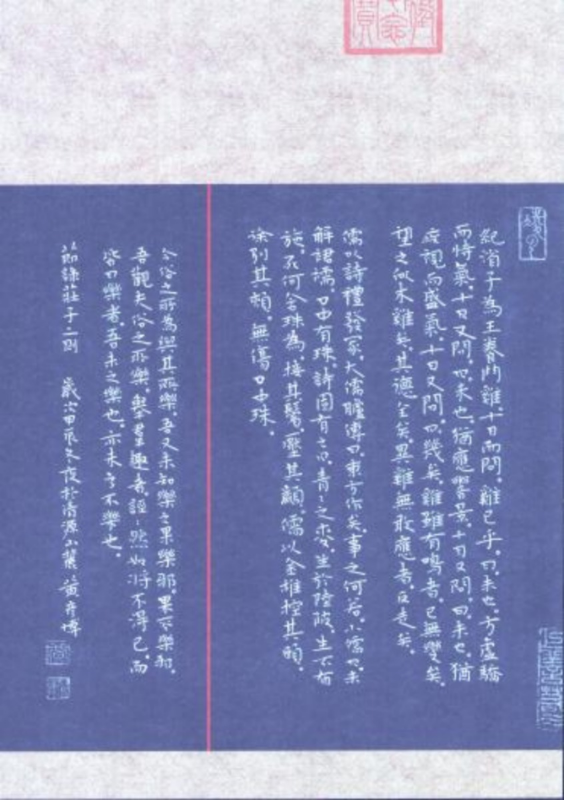 紀渻子為王養鬥雞。十日而問。雞已乎。曰未也。方虛驕
而恃氣。十日又問。曰未也。猶應嚮景。十日又問。曰未也。猶
疾視而盛氣。十日又問。曰幾矣。雞雖有鳴者。已無變矣。
望之似木雞矣。其德全矣。異雞無敢應者。反走矣。
儒以詩禮發冢。大儒臚傳曰東方作矣。事之何若。小儒曰未
解裙襦。口中有珠。詩固有之曰青青之麥。生於陵陂。生不布
施。死何含珠為。接其鬢。壓其顪。儒以金椎控其頤。
徐別其頰。無傷口中珠。
今俗之所為與其所樂。吾又未知樂之果樂邪。果不樂邪。
吾觀夫俗之所樂。舉群趣者。誙誙然如將不得已。而
皆曰樂者。吾未之樂也。亦未之不樂也。
節錄莊子二則 歲次甲 冬夜於清源山 黃